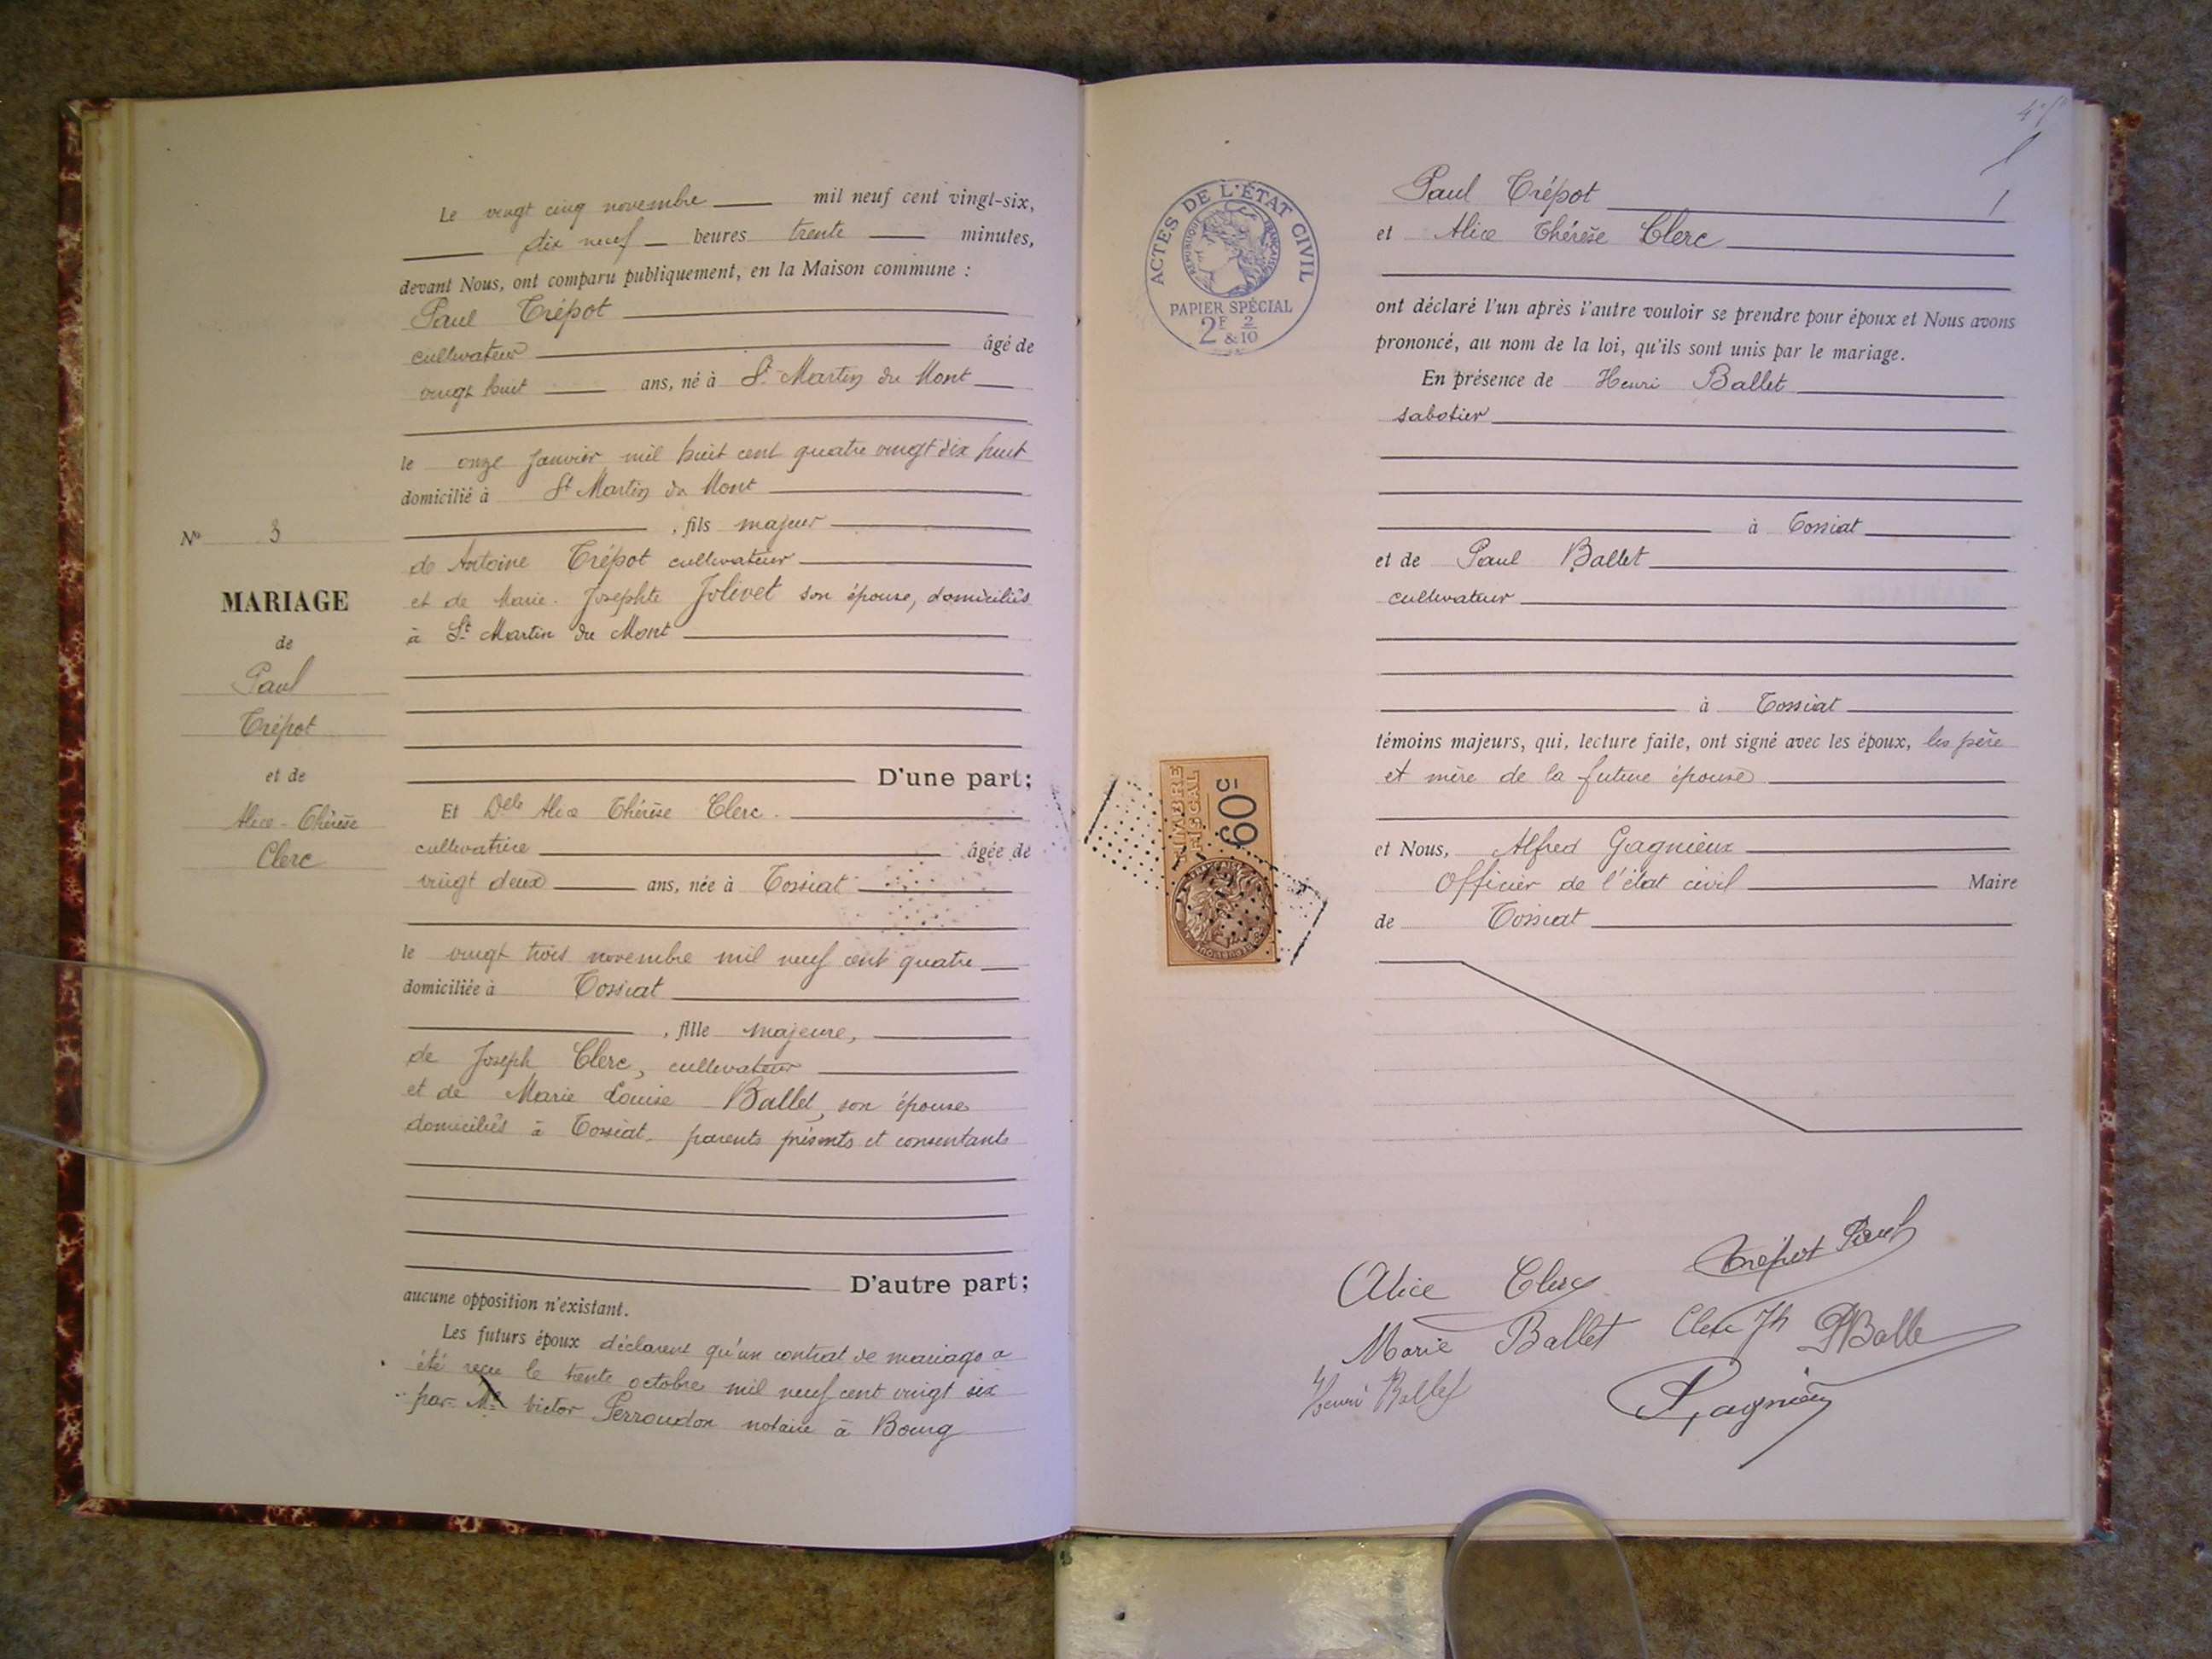 Le vingt cinq novembre mil neuf cent vingt-six,
dix neuf heures trente minutes,
devant Nous, ont comparu publiquement, en la Maison commune :
Paul Trépot
cultivateur âgé de
vingt huit ans, né à St Martin du Mont
le onze Janvier mil huit cent quatre vingt dix huit
domicilié à St Martin du Mont
, fils majeur
de Antoine Trépot cultivateur
et de Marie-Josephte Jolivet son épouse, domiciliés
à St Martin du Mont
D'une part;
Et Delle Alice Thérèse Clerc
cultivatrice âgée de
vingt deux ans, née à Tossiat
le vingt trois novembre mil neuf cent quatre
domiciliée à Tossiat
, fille majeure,
de Joseph Clerc, cultivateur
et de Marie Louise Ballet, son épouse
domiciliés à Tossiat parents présents et consentants
D'autre part;
aucune opposition n'existant.
Les futurs époux déclarent qu'un contrat de mariage a
été reçu le trente octobre mil neuf cent vingt six
par Me Victor Perroudon notaire à Bourg
N° 3
MARIAGE
de
Paul
Trépot
et de
Alice-Thérèse
Clerc
ACTES DE L'ÉTAT CIVIL
RÉPUBLIQUE FRANÇAISE
PAPIER SPÉCIAL
2F & 2/10
TIMBRE
FISCAL
60c
Paul Trépot
et Alice Thérèse Clerc
ont déclaré l'un après l'autre vouloir se prendre pour époux et Nous avons
prononcé, au nom de la loi, qu'ils sont unis par le mariage.
En présence de Henri Ballet
sabotier
à Tossiat
et de Paul Ballet
cultivateur
à Tossiat
témoins majeurs, qui, lecture faite, ont signé avec les époux, les père
et mère de la future épouse
et Nous, Alfred Gagnieux
Officier de l'état civil Maire
de Tossiat
Trépot Paul
Alice Clerc
Marie Ballet Clerc Jh PBalle
Henri Ballet
Gagnieux